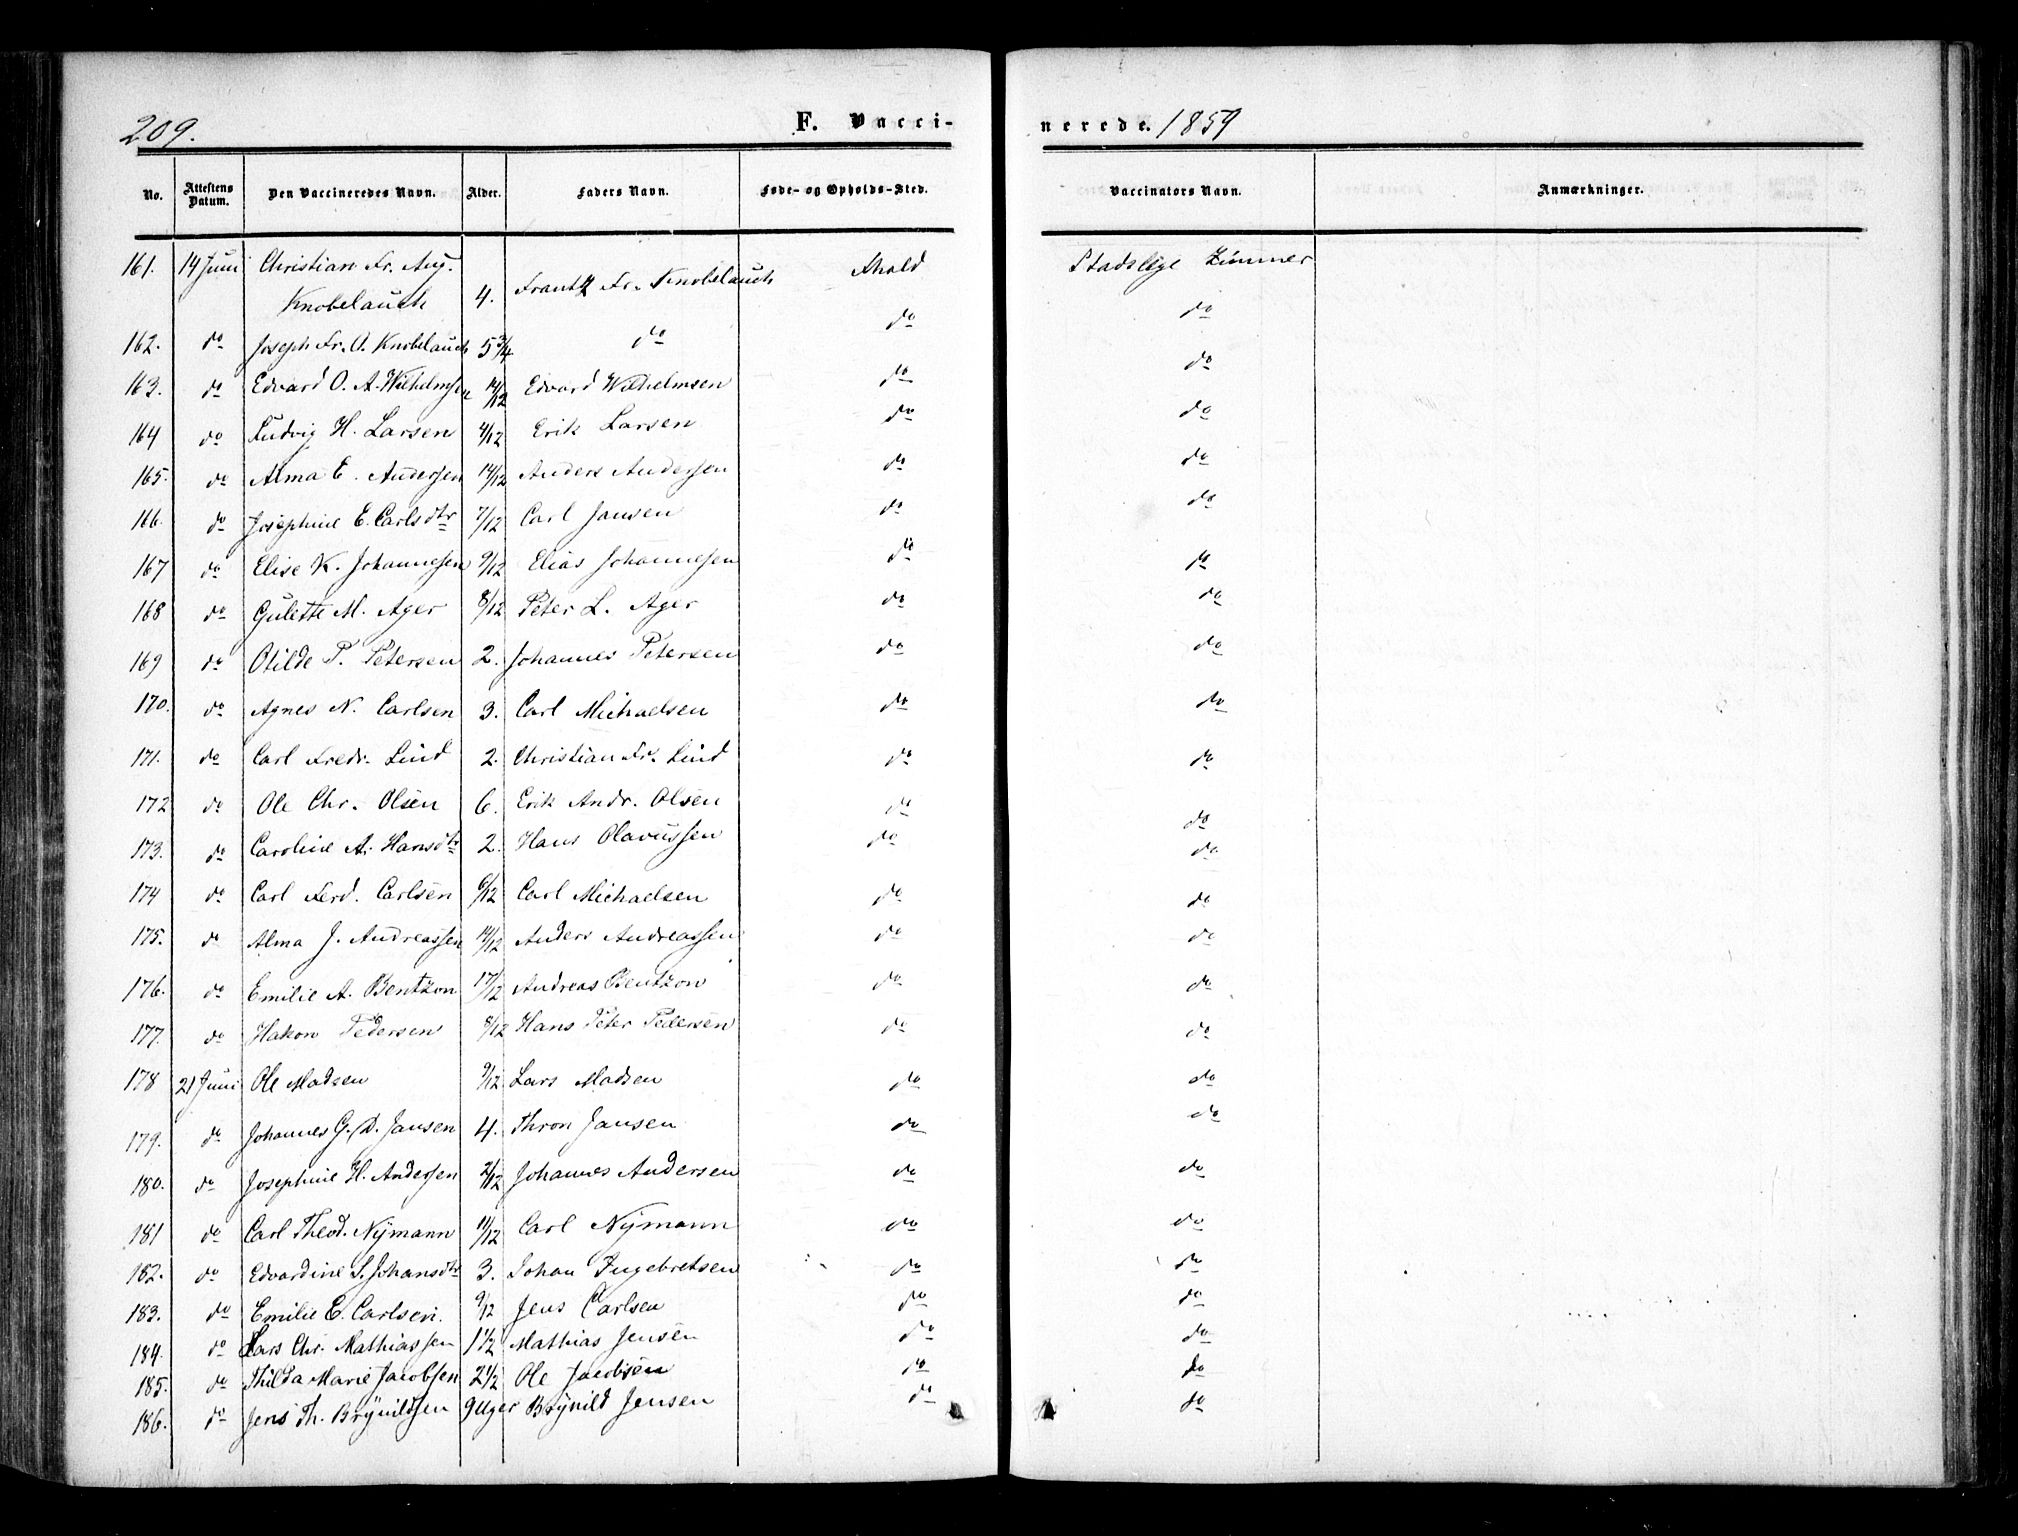 209.
F. Vacci-
nerede. 1859
No. Attestens Datum. Den Vaccineredes Navn. Alder. Faders Navn. Føde- og Opholds-Sted. Vaccinators Navn. Anmærkninger.
161. 14 Juni Christian Fr. Aug. Knobelauch 4. Frantz Fr. Knobelauch Fhald Stadslæge Zimmer
162. do Joseph Fr. O. Knobelauch 5 3/4 do do do
163. do Edvard O. A. Wilhelmsen 14/12 Edvard Wilhelmsen do do
164 do Ludvig H. Larsen 4/12 Erik Larsen do do
165. do Alma E. Andersen 14/12 Anders Andersen do do
166. do Josephine E. Carlsdtr 7/12 Carl Jansen do do
167 do Elise K. Johannesen 9/12 Elias Johannesen do do
168 do Gulette M. Ager 8/12 Peter L. Ager do do
169 do Otilde P. Petersen 2. Johannes Petersen do do
170. do Agnes N. Carlsen 3. Carl Michaelsen do do
171. do Carl Fredr. Lind 2. Christian Fr. Lind do do
172 do Ole Chr. Olsen 6. Erik Andr. Olsen do do
173. do Caroline A. Hansdtr 2. Hans Olavussen do do
174 do Carl Ferd. Carlsen 6/12 Carl Michaelsen do do
175. do Alma J. Andreassen 14/12 Anders Andreassen do do
176. do Emilie A. Bentzon 17/12 Andreas Bentzon do do
177. do Hakon Pedersen 8/12 Hans Peter Pedersen do do
178 21 Juni Ole Madsen 9/12 Lars Madsen do do
179. do Johannes G. D. Jansen 4. Thron Jansen do do
180. do Josephine H. Andersen 2/12 Johannes Andersen do do
181 do Carl Theod. Nÿmann 11/12 Carl Nÿmann do do
182. do Edvardine S. Johansdtr 3. Johan Ingebretsen do do
183. do Emilie E. Carlsen. 9/12 Jens Carlsen do do
184. do Lars Chr. Mathiassen 1 1/2 Mathias Jensen do do
185. do Thilda Marie Jacobsen 2 1/2 Ole Jacobsen do do
186. do Jens Th. Brÿnildsen 9 Uger Brÿnild Jensen do do